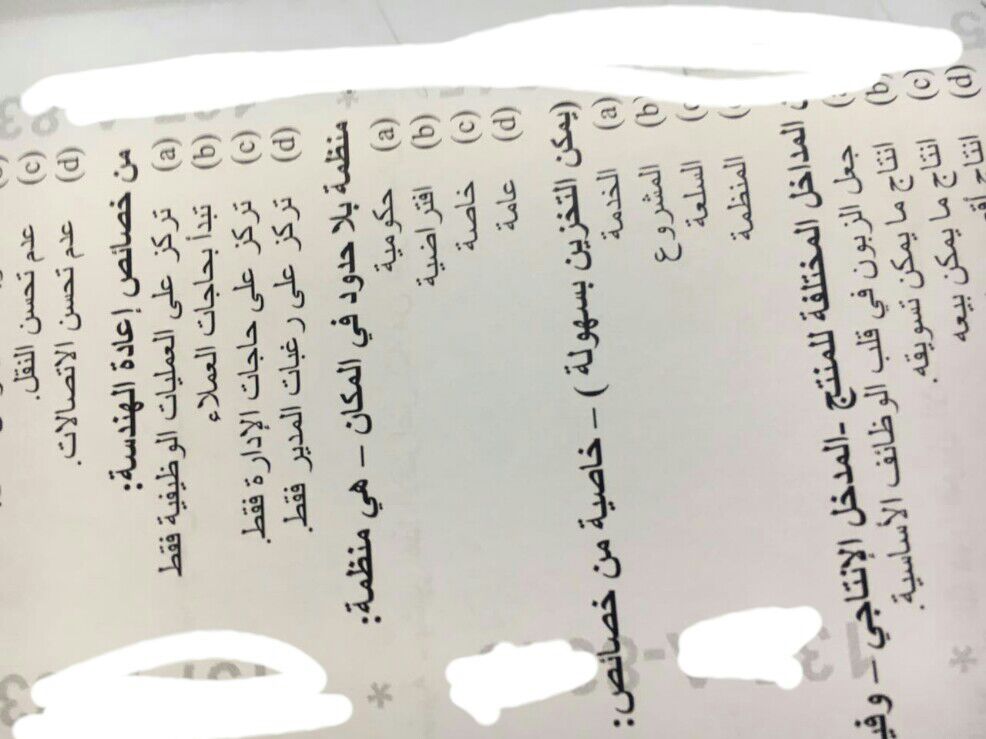 (c) عدم تحسن النقل.
(d) عدم تحسن الاتصالات.
من خصائص إعادة الهندسة:
(a) تركز على العمليات الوظيفية فقط
(b) تبدأ بحاجات العملاء
(c) تركز على حاجات الإدارة فقط.
(d) تركز على رغبات المدير فقط.
منظمة بلا حدود في المكان – هي منظمة:
(a) حكومية
(b) افتراضية
(c) خاصة
(d) عامة
(يمكن التخزين بسهولة ) – خاصية من خصائص:
(a) الخدمة
(b) المشروع
السلعة
المنظمة
المداخل المختلفة للمنتج -المدخل الإنتاجي – وفي
جعل الزبون في قلب الوظائف الأساسية.
(b) انتاج ما يمكن تسويقه.
(c) انتاج ما يمكن بيعه
(d) انتاج